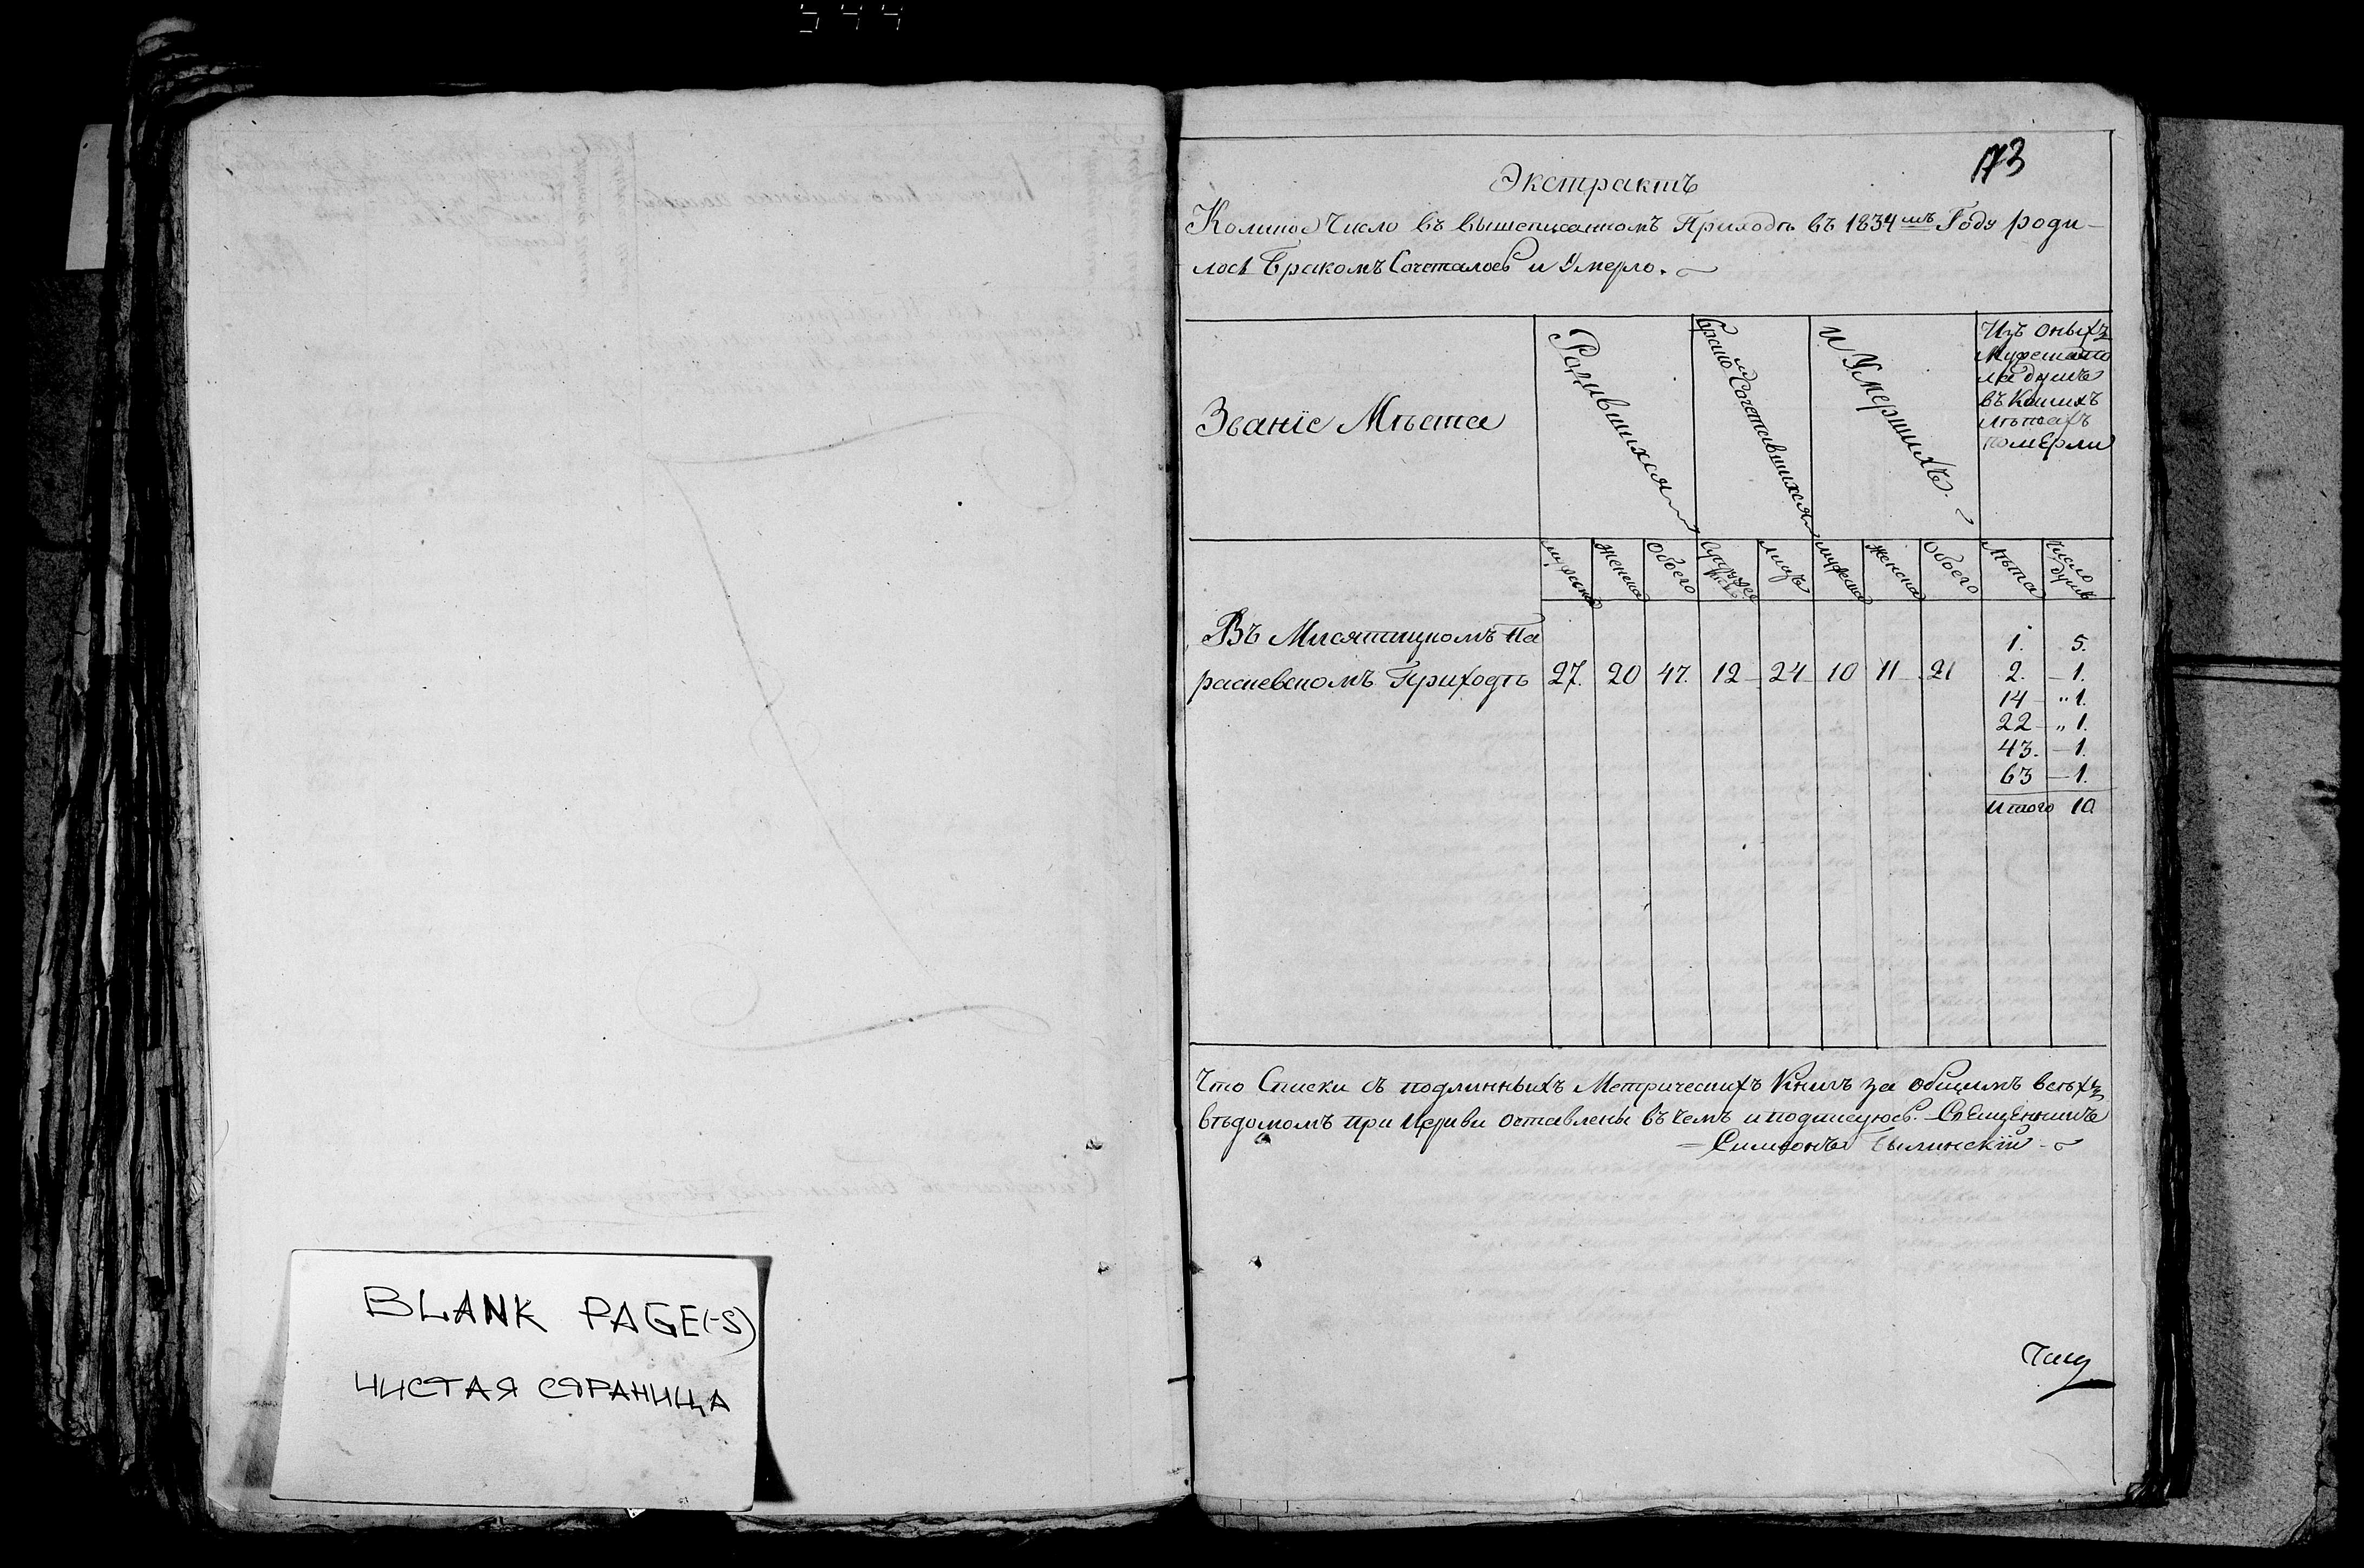 544
BLANK PAGE(-S)
ЧИСТАЯ СТРАНИЦА
173
Экстрактъ
Коликое Число въ вышеписанномъ Приходѣ въ 1834мъ Году роди-
лось Бракомъ Сочеталось и Умерло.
Званіе Мѣста
Родившихся
Брако Сочетавшихся
и Умершихъ.
Изъ оныхъ
Мужеска по
ла душъ
въ Коихъ
лѣтахъ
померли
мужеска
женска
обоего
лицъ
мужеска
женска
обоего
лѣта
число душъ
Въ Мисятицкомъ Па
раскевскомъ Приходѣ 27. 20 47. 12 24 10 11 21
1. 5.
2. — 1.
14 — „ 1.
22 — „ 1.
43. — 1.
63 — 1.
Итого 10.
Что Списки съ подлинныхъ Метрическихъ Книгъ за общимъ всѣхъ
вѣдомомъ при Церкви оставлены въ чемъ и подписуюсь. Священникъ
— Симеонъ Былинскій